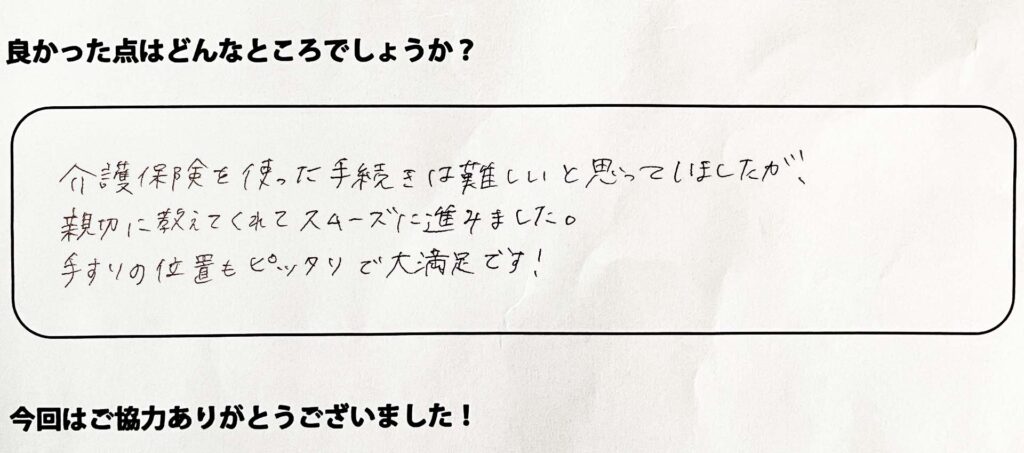 良かった点はどんなところでしょうか？
介護保険を使った手続きは難しいと思ってしましたが、
親切に教えてくれてスムーズに進みました。
手すりの位置もピッタリで大満足です！
今回はご協力ありがとうございました！